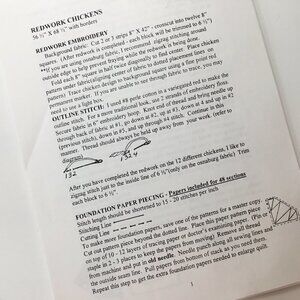 REDWORK CHICKENS
56 ½" X 68 ½" with borders
REDWORK EMBROIDERY
Background fabric: Cut 2 or 3 strips 8" X 42" - crosscut into twelve 8"
squares. (After redwork is completed - each block will be trimmed to 6 ½")
*If you are using osnaburg fabric, I recommend zigzag stitching around
outside edge to help prevent fraying while the redwork is being done.
Fold each 8" square in half twice diagonally to find center. Place chicken
pattern under fabric(aligning center of square using a fine point red
pattern) Trace chicken design onto
permanent marker. If you are unable to see through fabric to trace, you may
need to use a light box.
OUTLINE STITCH: I used #8 perle cotton in a variegated red to make the
outline stitch. For a more traditional look, use 2 strands of embroidery floss
Secure fabric in 6" embroidery hoop. Knot end of thread and bring up
through back of fabric at #1, go down at #2, up at #3, down at 4 and up at #2
(previous stitch), down in #5, and up through #4 stitch. Continue in this
manner. Thread should always be held away from your work. (refer to
diagram)
1 3 2
1 5 2 4
After you have completed the redwork on the 12 different chickens, I like to
zigzag stitch just to the inside line of 6 ½"(only on the osnaburg fabric) Trim
each block to 6 ½".
FOUNDATION PAPER PIECING - Papers included for 48 sections
Stitch length should be shortened to 15 - 20 stitches per inch
Stitching Line
Cutting Line
To make more foundation papers, save one of the patterns for a master copy.
Cut out pattern piece beyond the dotted line. Place this pattern paper
on top of 10 - 12 layers of tracing paper or doctor's examining paper. (Pin or
staple in 2 - 3 places to keep the papers from moving) Remove all thread
from machine and put in an old needle. Needle punch along all sewing lines and
the outside seam line. Pull papers from bottom of stack as you need them.
Repeat this step to get the extra foundation papers needed to enlarge quilt.
1